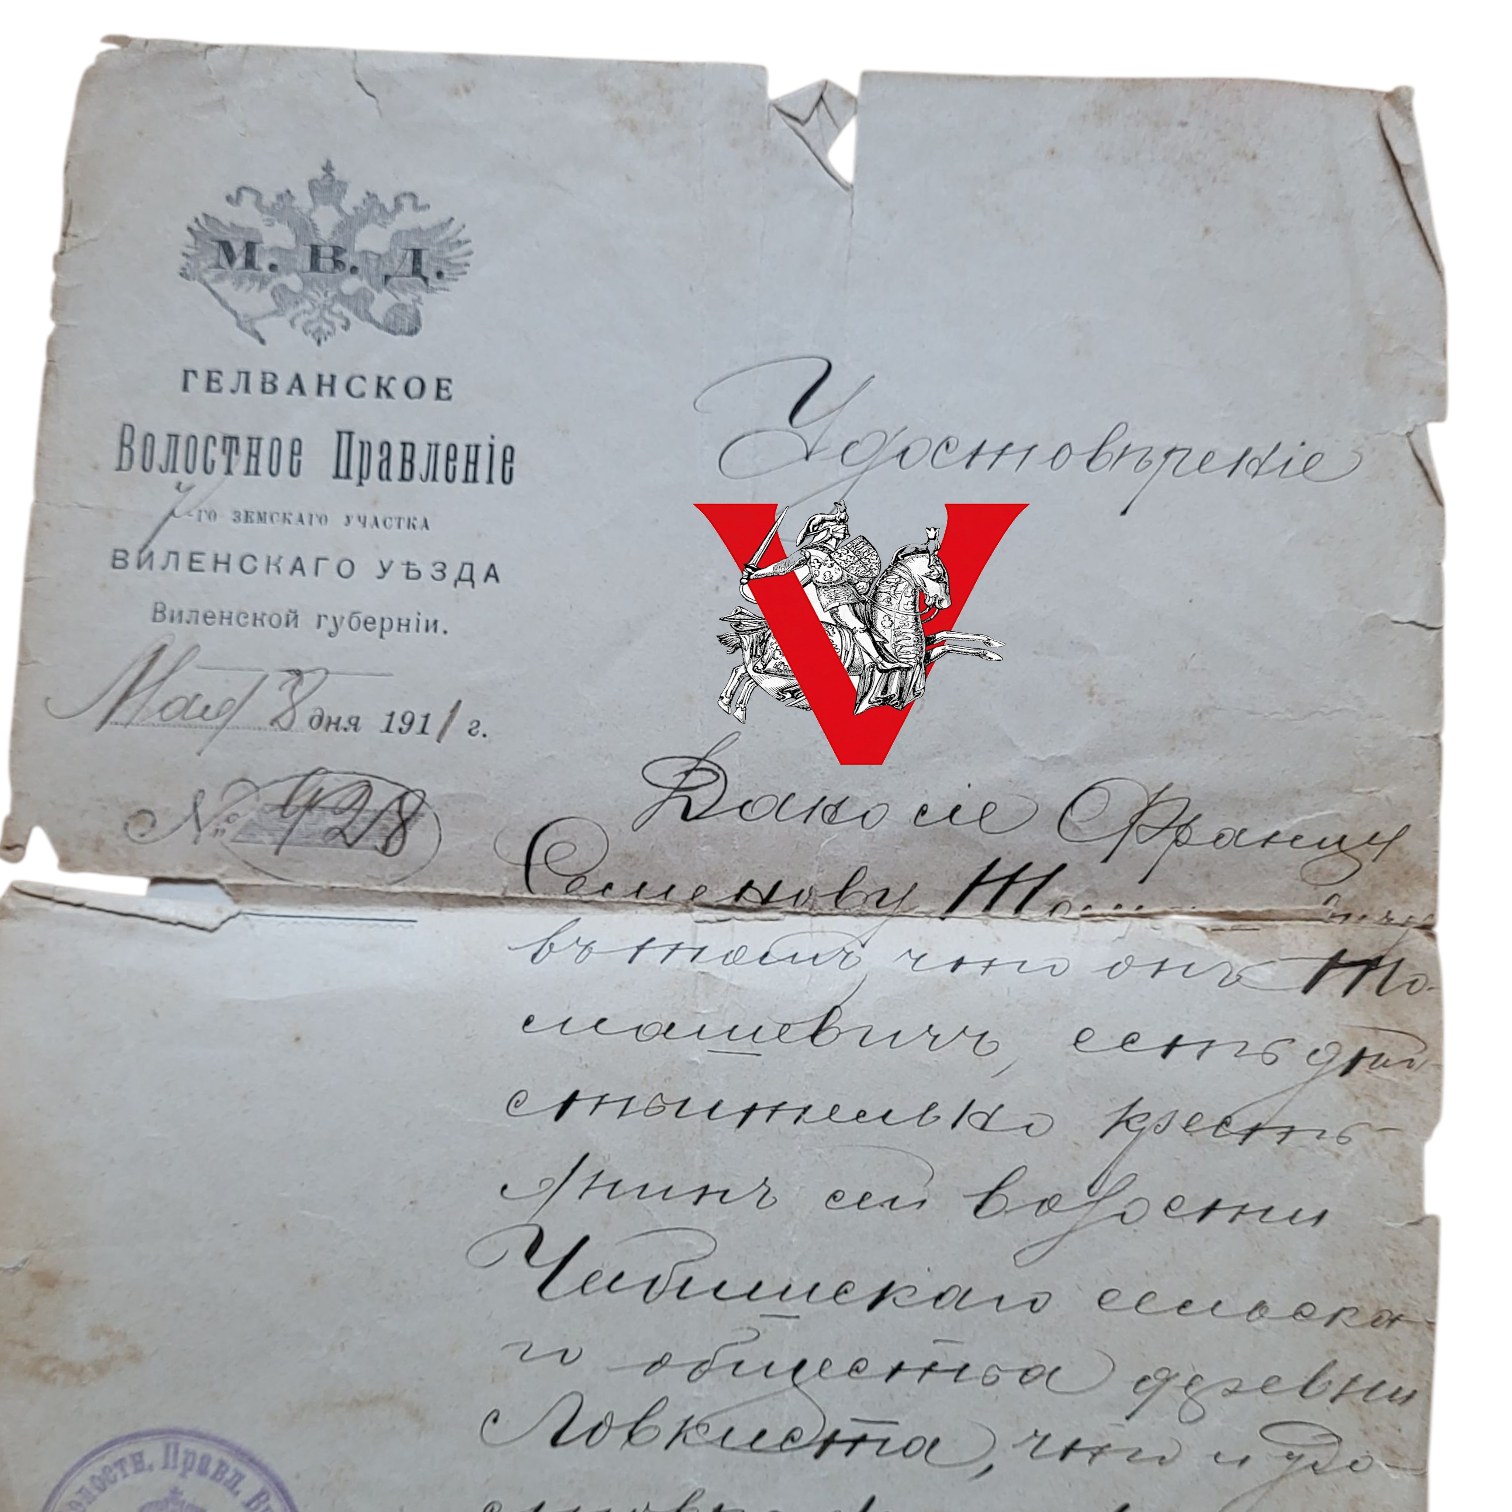 М. В. Д.
ГЕЛВАНСКОЕ
Волостное Правленіе
-го ЗЕМСКАГО УЧАСТКА
ВИЛЕНСКАГО УѢЗДА
Виленской губерніи.
Мая 8 дня 1911 г.
№ 928
Удостовѣреніе
V
Дано сіе Францу
Семенову
въ томъ, что онъ То-
машевичъ, есть дѣй-
ствительно кресть-
янинъ сей волости
сельска-
го общества деревни
Ловкиста, что и удо-
Волостн. Правл.